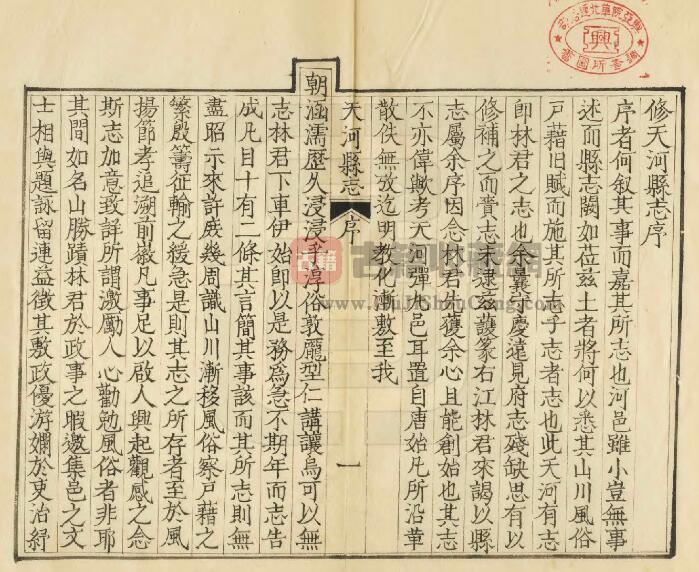 修天河縣志序
序者何叙其事而嘉其所志也河邑雖小豈無事
述而縣志闕如莅兹土者將何以悉其山川風俗
戶藉旧賦而施其所志乎志者志也此天河有志
即林君之志也余曩守慶遠見府志殘缺思有以
修補之而貴志未逮兹護篆右江林君來謁以縣
志屬余序因念林君先獲余心且能創始也其志
不亦偉歟考天河彈丸邑耳置自唐始凡所沿革
散佚無攷迄明教化漸敷至我
天河縣志 序 一
朝涵濡歷久浸浸乎淳俗敦龐型仁講讓烏可以無
志林君下車伊始即以是務為急不期年而志告
成凡目十有二條其言簡其事該而其所志則無
盡昭示來許庶幾周識山川漸移風俗察戶藉之
繁殷籌征輸之緩急是則其志之所存者至於風
揚節孝追溯前徽凡事足以啟人興起觀感之念
斯志加意致詳所謂激勵人心勸勉風俗者非耶
其間如名山勝蹟林君於政事之暇邀集邑之文
士相與題詠留連益徵其敷政優游嫻於吏治紓
古籍收藏網
www.GuJiShouCang.com